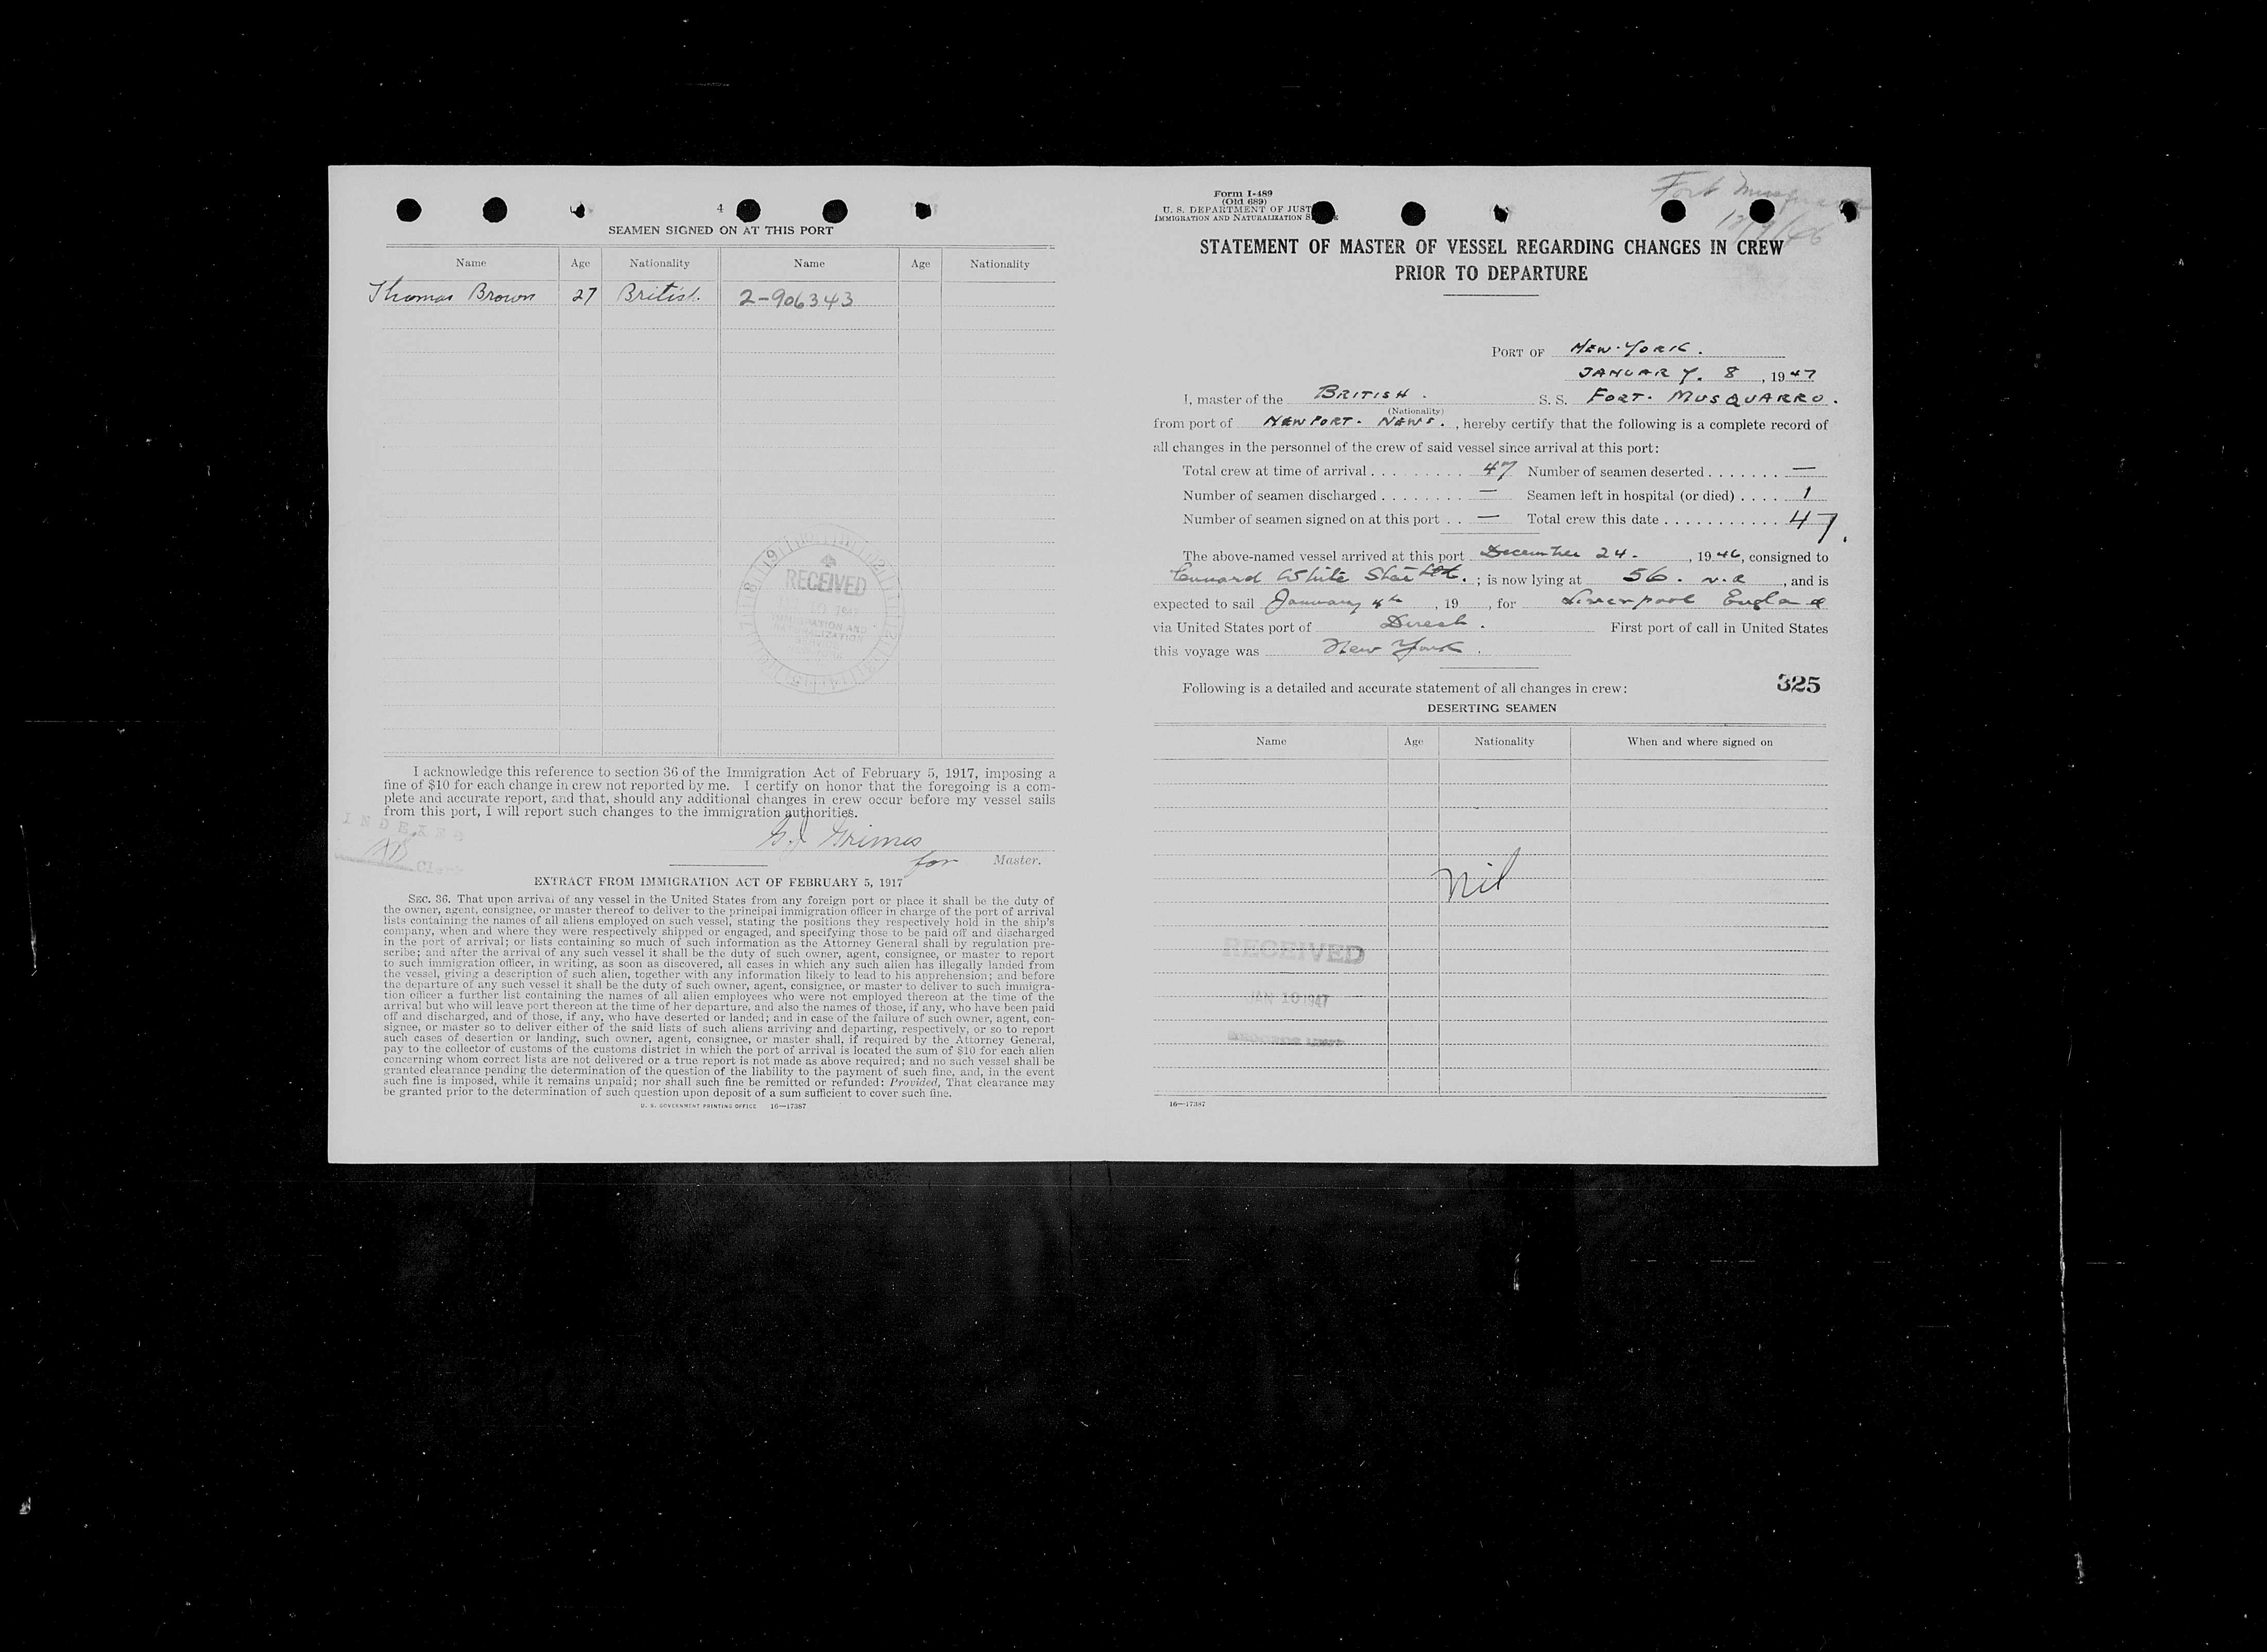 4
SEAMEN SIGNED ON AT THIS PORT
Name Age Nationality Name Age Nationality
Thomas Brown 27 British. 2-906343
RECEIVED
10 1947
IMMIGRATION AND
NATURALIZATION
I acknowledge this reference to section 36 of the Immigration Act of February 5, 1917, imposing a
fine of $10 for each change in crew not reported by me. I certify on honor that the foregoing is a com-
plete and accurate report, and that, should any additional changes in crew occur before my vessel sails
from this port, I will report such changes to the immigration authorities.
INDEXED
G.J Grimes
for Master.
EXTRACT FROM IMMIGRATION ACT OF FEBRUARY 5, 1917
SEC. 36. That upon arrival of any vessel in the United States from any foreign port or place it shall be the duty of
the owner, agent, consignee, or master thereof to deliver to the principal immigration officer in charge of the port of arrival
lists containing the names of all aliens employed on such vessel, stating the positions they respectively hold in the ship's
company, when and where they were respectively shipped or engaged, and specifying those to be paid off and discharged
in the port of arrival; or lists containing so much of such information as the Attorney General shall by regulation pre-
scribe; and after the arrival of any such vessel it shall be the duty of such owner, agent, consignee, or master to report
to such immigration officer, in writing, as soon as discovered, all cases in which any such alien has illegally landed from
the vessel, giving a description of such alien, together with any information likely to lead to his apprehension; and before
the departure of any such vessel it shall be the duty of such owner, agent, consignee, or master to deliver to such immigra-
tion officer a further list containing the names of all alien employees who were not employed thereon at the time of the
arrival but who will leave port thereon at the time of her departure, and also the names of those, if any, who have been paid
off and discharged, and of those, if any, who have deserted or landed; and in case of the failure of such owner, agent, con-
signee, or master so to deliver either of the said lists of such aliens arriving and departing, respectively, or so to report
such cases of desertion or landing, such owner, agent, consignee, or master shall, if required by the Attorney General,
pay to the collector of customs of the customs district in which the port of arrival is located the sum of $10 for each alien
concerning whom correct lists are not delivered or a true report is not made as above required; and no such vessel shall be
granted clearance pending the determination of the question of the liability to the payment of such fine, and, in the event
such fine is imposed, while it remains unpaid; nor shall such fine be remitted or refunded: Provided, That clearance may
be granted prior to the determination of such question upon deposit of a sum sufficient to cover such fine.
U. S. GOVERNMENT PRINTING OFFICE 16—17387
Form I-489
(Old 689)
U. S. DEPARTMENT OF JUST
IMMIGRATION AND NATURALIZATION S
Fort
STATEMENT OF MASTER OF VESSEL REGARDING CHANGES IN CREW
PRIOR TO DEPARTURE
PORT OF NEW-YORK.
JANUARY. 8, 1947
I, master of the BRITISH. S. S. FORT. MUSQUARRO.
(Nationality)
from port of NEWPORT. NEWS., hereby certify that the following is a complete record of
all changes in the personnel of the crew of said vessel since arrival at this port:
Total crew at time of arrival . . . . . . . . . 47 Number of seamen deserted . . . . . . . —
Number of seamen discharged . . . . . . . . — Seamen left in hospital (or died) . . . . 1
Number of seamen signed on at this port . . — Total crew this date . . . . . . . . . . . 47.
The above-named vessel arrived at this port December 24., 1946, consigned to
Cunard White Star Ltd.; is now lying at 56. N.R, and is
expected to sail January 4th, 19 , for Liverpool England
via United States port of Direct. First port of call in United States
this voyage was New York.
Following is a detailed and accurate statement of all changes in crew: 325
DESERTING SEAMEN
Name Age Nationality When and where signed on
Nil
RECEIVED
JAN 10 1947
16—17387